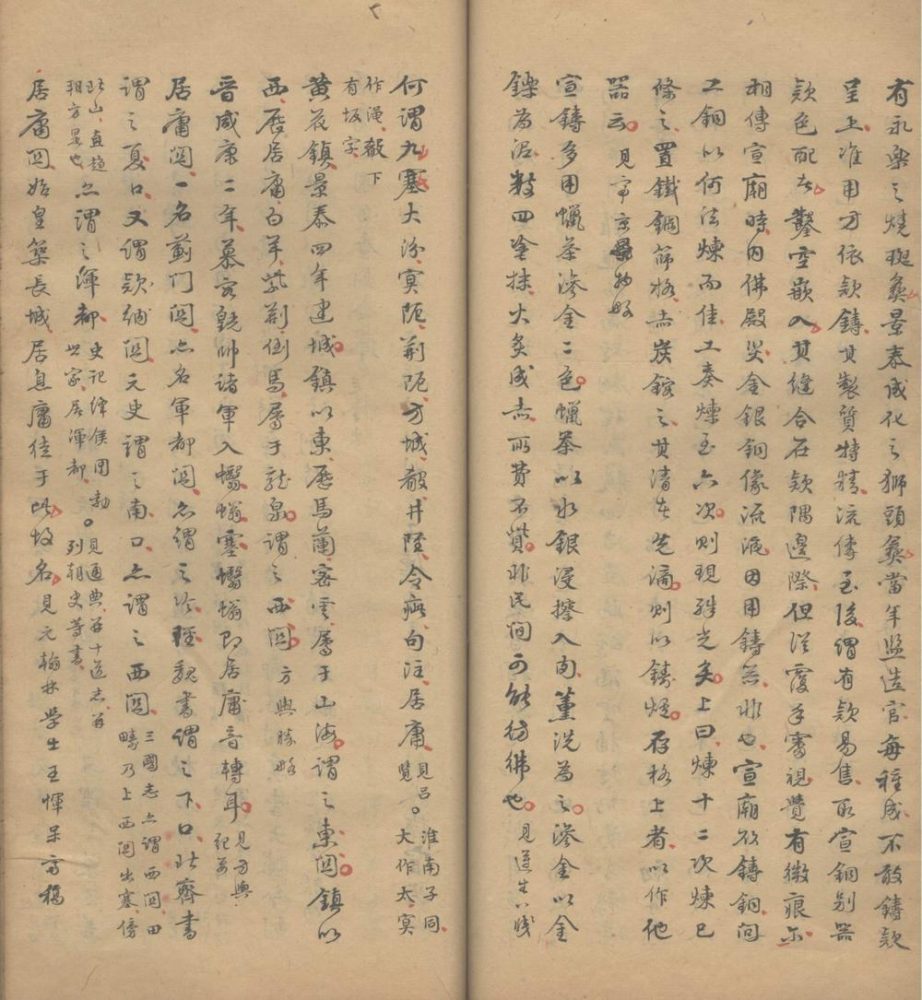 有永樂之燒斑彝景泰成化之獅頭彝當年監造官每種成不敢鑄款
呈上准用方依款鑄其製質特精流傳至後謂有款易售取宣銅別器
款色配者鑿空嵌入其縫合在款隅邊際但從覆手審視覺有微痕尓
相傳宣廟時內佛殿災金銀銅像流混因用鑄器非也宣廟欲鑄銅問
工銅以何法煉而佳工奏煉至六次則現殊光矣上曰煉十二次煉已
條之置鐵鋼篩格赤炭鎔之其清者先滴則以鑄爐存格上者以作他
器云見帝京景物略
宣鑄多用蠟茶滲金二色蠟茶以水銀浸擦入肉薰洗為之滲金以金
鑠為泥數四塗抹火炙成赤所費不貲非民間可能彷彿也見遵生八牋
何謂九塞大汾冥阨荊阮方城殽井陘令疵句注居庸見呂覽。淮南子同大作太冥
作澠殽下有坂字
黃花鎮景泰四年建城鎮以東歷馬蘭密雲屬于山海謂之東關鎮以
西歷居庸白羊紫荊倒馬屬于龍泉謂之西關方輿勝略
晉咸康二年慕容皝帥諸軍入蠮螉塞蠮螉即居庸音轉耳見方輿紀要
居庸關一名薊門關亦名軍都關亦謂之冷陘魏書謂之下口北齊書
謂之夏口又謂欵納關元史謂之南口亦謂之西關三國志亦謂西關田疇乃上西關出塞傍
北山直趨朔方是也亦謂之渾都史記絳侯周勃世家屠渾都。見通典并十道志并列朝史等書
居庸關始皇築長城居息庸徒于此故名見元翰林學士王惲呆亭稿